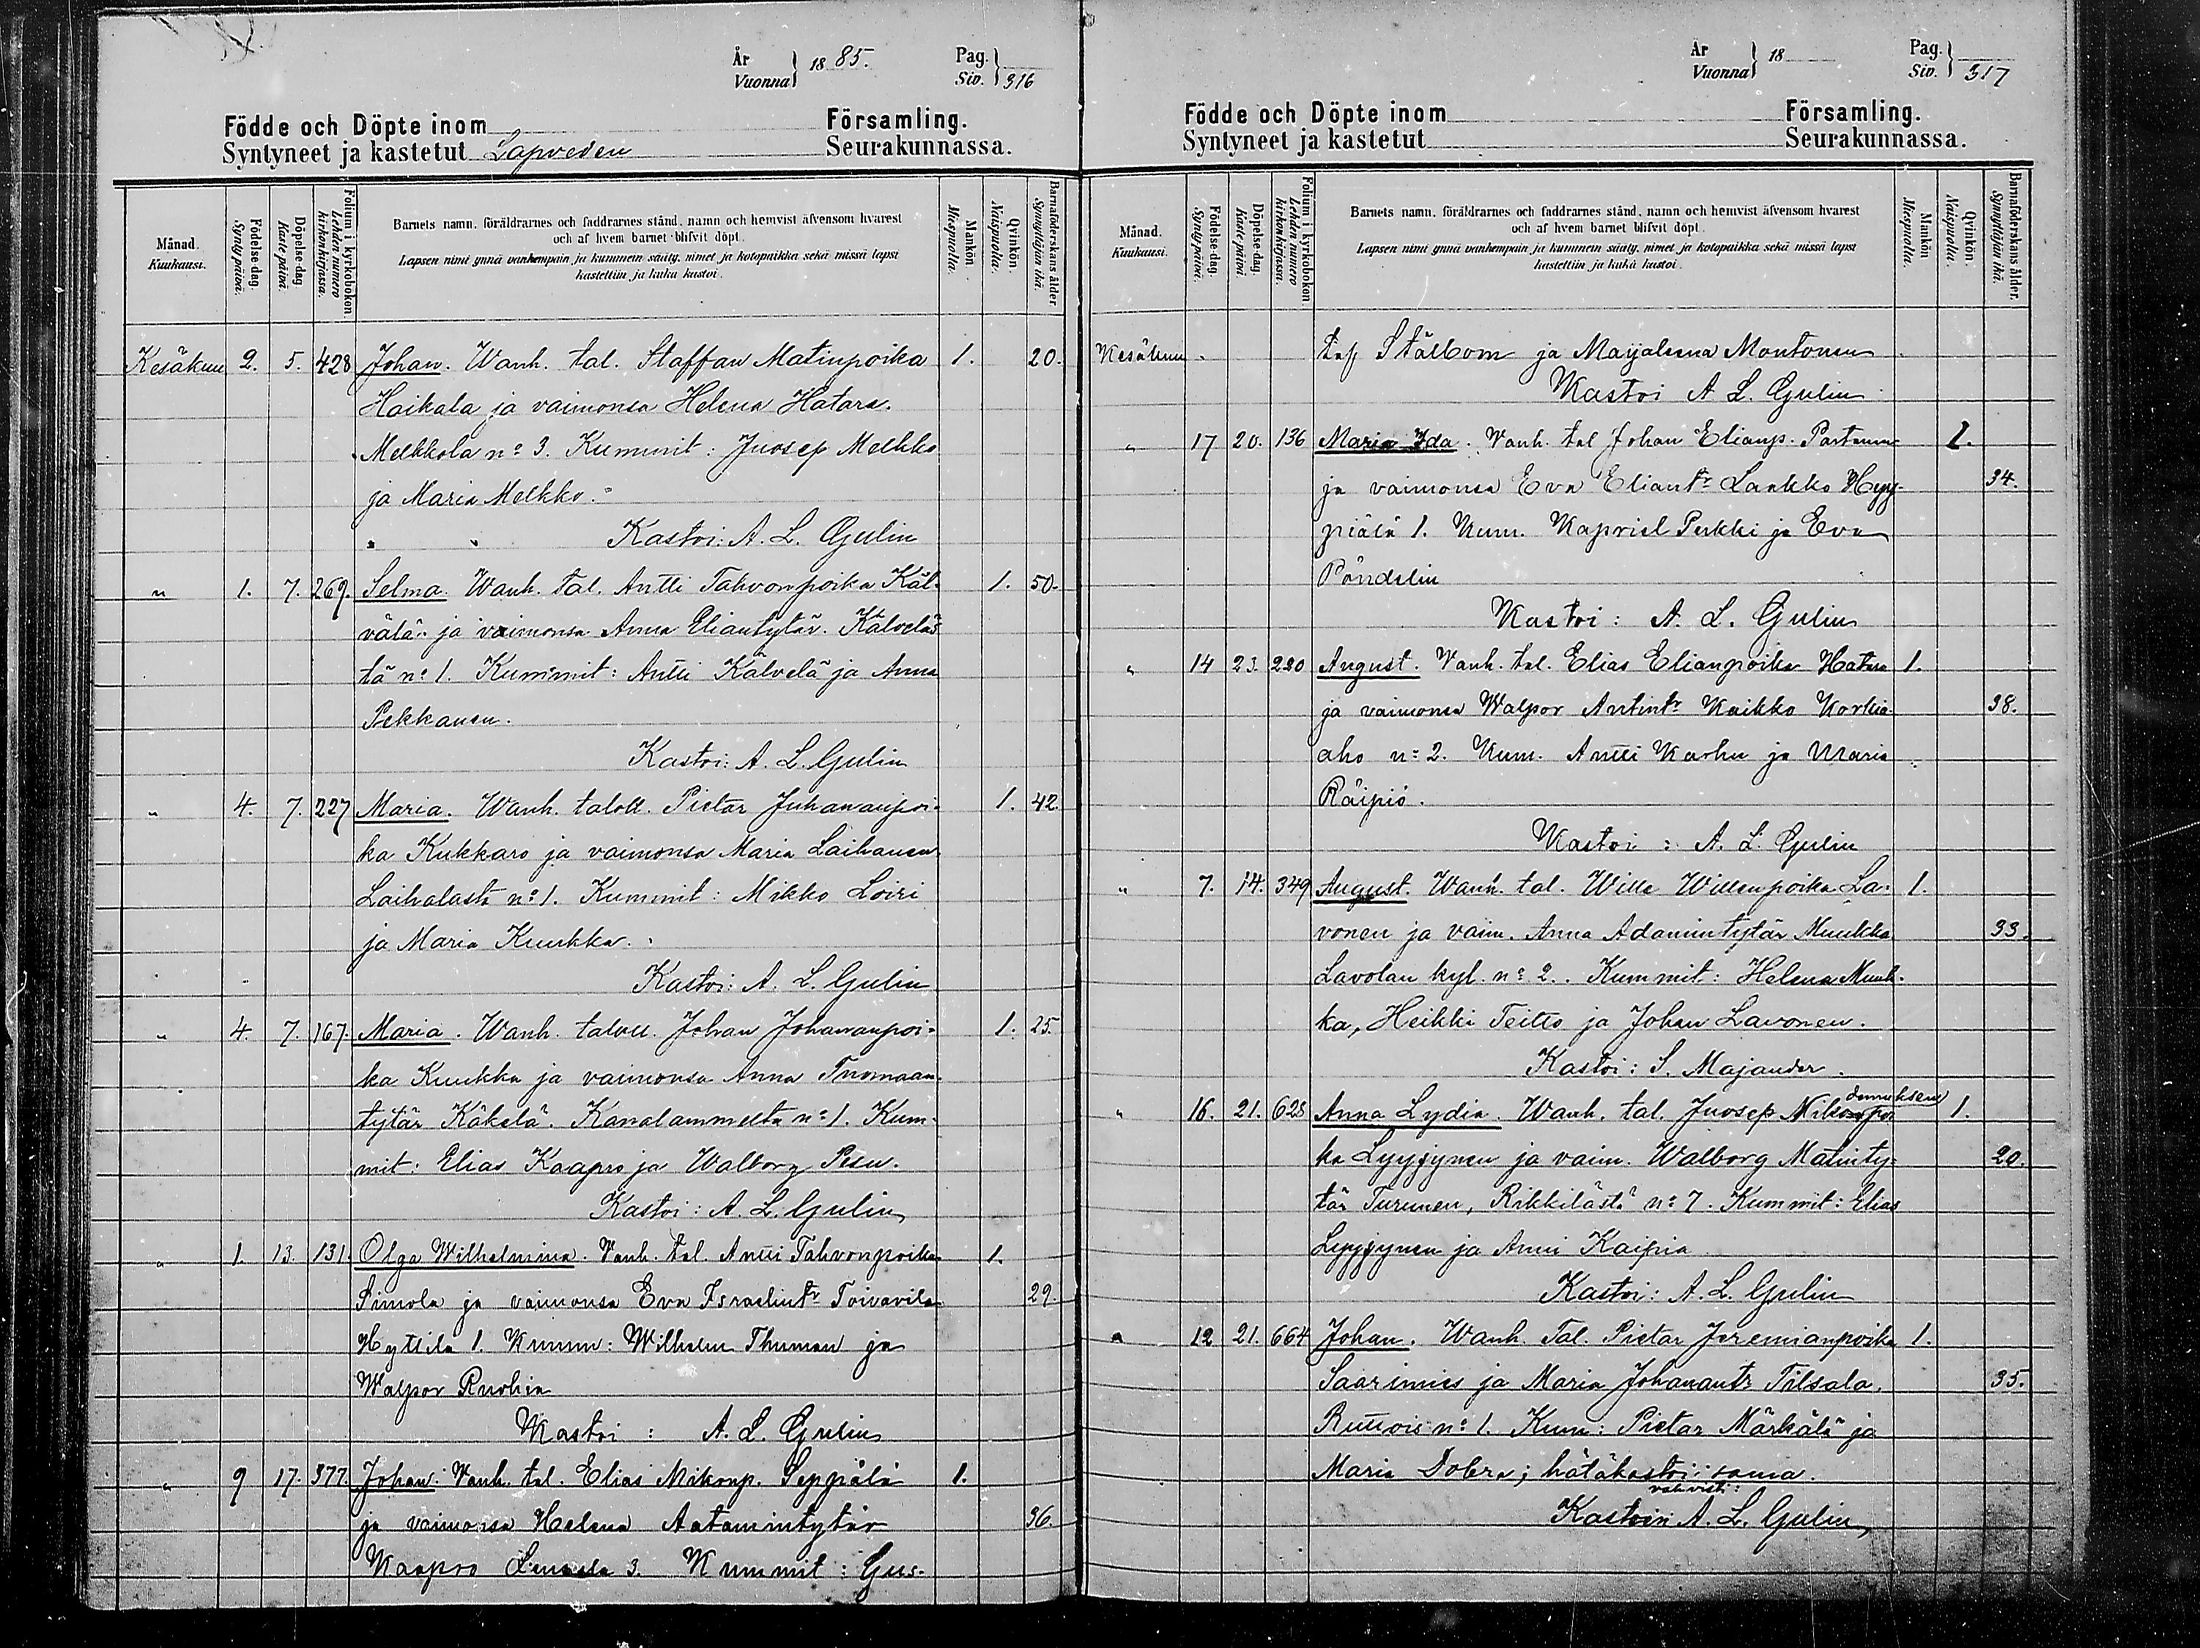 År
Vuonna } 1885.
Pag.
Siv. } 316
Födde och Döpte inom Församling.
Syntyneet ja kastetut Lapveden Seurakunnassa.
Månad.
Kuukausi.
Födelse-dag.
Synty-päivä.
Döpelse-dag.
Kaste-päivä
Folium i kyrkoboken
Lehden numero kirkonkirjassa.
Barnets namn, föräldrarnes och faddrarnes stånd, namn och hemvist äfvensom hvarest
och af hvem barnet blifvit döpt.
Lapsen nimi ynnä vanhempain ja kummein sääty, nimet ja kotopaikka sekä missä lapsi
kastettiin ja kuka kastoi.
Mankön.
Miespuolia.
Qvinkön.
Naispuolia.
Barnaföderskans ålder.
Synnyttäjän ikä.
Kesäkuu 2. 5. 428 Johan. Wanh. tal. Staffan Matinpoika 1. 20.
Haikala ja vaimonsa Helena Hatara.
Melkkola n:o 3. Kummit: Juosep Melkko
ja Maria Melkko.
Kastoi: A. L. Gulin
" 1. 7. 269. Selma. Wanh. tal. Antti Tahvonpoika Käl- 1. 50.
välä ja vaimonsa Anna Eliantytär. Kälveläs
tä n:o 1. Kummit: Antti Kälvelä ja Anna
Pekkanen.
Kastoi: A. L. Gulin
" 4. 7. 227 Maria. Wanh. taloll. Pietar Juhananpoi- 1. 42
ka Kukkaro ja vaimonsa Maria Laihanen
Laihalasta n:o 1. Kummit: Mikko Loiri
ja Maria Kuukka.
Kastoi: A. L. Gulin
" 4. 7. 167. Maria. Wanh. taloll. Johan Johananpoi- 1. 25.
ka Kuukka ja vaimonsa Anna Tuomaan-
tytär Käkelä. Kanalammelta n:o 1. Kum-
mit: Elias Kaapro ja Walborg Pesu.
Kastoi: A. L. Gulin
" 1. 13. 131 Olga Wilhelmina. Vanh. tal. Antti Tahvonpoika 1.
Simola ja vaimonsa Eva Israelint:r Toivavila 29.
Hyttilä 1. Kumm: Wilhelm Thuman ja
Walpor Ruohia
Kastoi: A. L. Gulin
" 9 17. 377. Johan. Vanh. tal. Elias Mikonp. Seppälä 1.
ja vaimonsa Helena Aatamintytär 36.
Kaapro 3. Kummit: Gus-
År
Vuonna } 18
Pag.
Siv. } 317
Födde och Döpte inom Församling.
Syntyneet ja kastetut Seurakunnassa.
Månad.
Kuukausi.
Födelse-dag.
Synty-päivä.
Döpelse-dag.
Kaste-päivä
Folium i kyrkoboken
Lehden numero kirkonkirjassa.
Barnets namn, föräldrarnes och faddrarnes stånd, namn och hemvist äfvensom hvarest
och af hvem barnet blifvit döpt.
Lapsen nimi ynnä vanhempain ja kummein sääty, nimet ja kotopaikka sekä missä lapsi
kastettiin ja kuka kastoi.
Mankön
Miespuolia.
Qvinkön.
Naispuolia.
Barnaföderskans ålder.
Synnyttäjän ikä.
Kesäkuu taf Stålbom ja Maijaleena Montonen
Kastoi A. L. Gulin
" 17 20. 136 Maria Ida. Vanh. tal Johan Elianp. Partanen 1.
ja vaimonsa Eva Eliant:r Laakko Hyy- 34.
piälä 1. Kum. Kapriel Pukki ja Eva
Pöndelin
Kastoi: A. L. Gulin
" 14 23. 280 August. Vanh. tal. Elias Elianpoika Hatara 1.
ja vaimonsa Walpor Antint:r Kaikko Korkia- 38.
aho n:o 2. Kum. Antti Karhu ja Maria
Räipiö.
Kastoi: A. L. Gulin
" 7. 14. 349 August. Wanh. tal. Wille Willenpoika La- 1.
vonen ja vaim. Anna Adamintytär Muukka 33.
Lavolan kyl. n:o 2. Kummit: Helena Muuk-
ka, Heikki Teitto ja Johan Lavonen.
Kastoi: S. Majander.
" 16. 21. 628 Anna Lydia. Wanh. tal. Juosep Nikonpoi 1.
ka Lyyjynen ja vaim. Walborg Matinty- 20.
tär Turunen, Rikkilästä n:o 7. Kummit: Elias
Lyyjynen ja Anni Kaipia
Kastoi: A. L. Gulin
" 12 21. 664 Johan. Wanh. Tal. Pietar Jeremianpoika 1.
Saarimies ja Maria Johanantr Tilsala. 35.
Ruttois n:o 1. Kum: Pietar Märkälä ja
Maria Dobra; hätäkastoi: sama.
vahvisti:
Kastoi: A. L. Gulin,